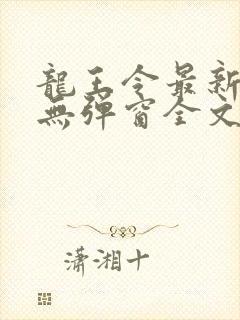 龍王令最新
無彈窗全文
瀟湘十